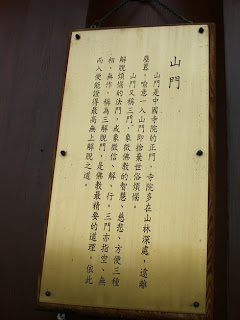 山門
山門是中國寺院的正門，寺院多在山林深處，遠離
塵囂，喻意一入山門即捨棄世俗煩惱。
山門又稱三門，象徵佛教的智慧、慈悲、方便三種
解脫煩惱的法門，或象徵信、解、行。三門亦指空、無
相、無作，稱為三解脫門，是佛教最精要的道理，依此
而入便能證得最高無上解脫之道。